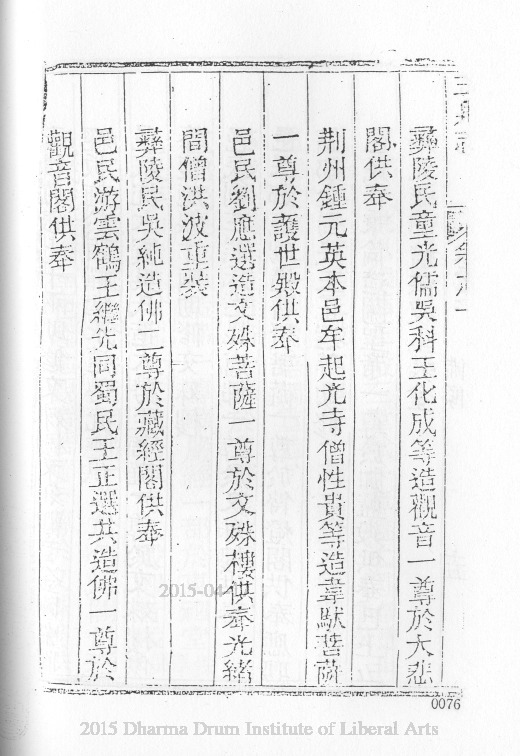 彝陵民童光儒吳科王化成等造觀音一尊於大悲
閣供奉
荆州鍾元英本邑牟起光寺僧性貴等造韋馱菩薩
一尊於護世殿供奉
邑民劉應選造文殊菩薩一尊於文殊樓供奉光緒
間僧洪波重裝
彝陵民吳純造佛二尊於藏經閣供奉
邑民游雲鶴王繼先同蜀民王正選共造佛一尊於
觀音閣供奉
2015-04
0076
2015 Dharma Drum Institute of Liberal Arts